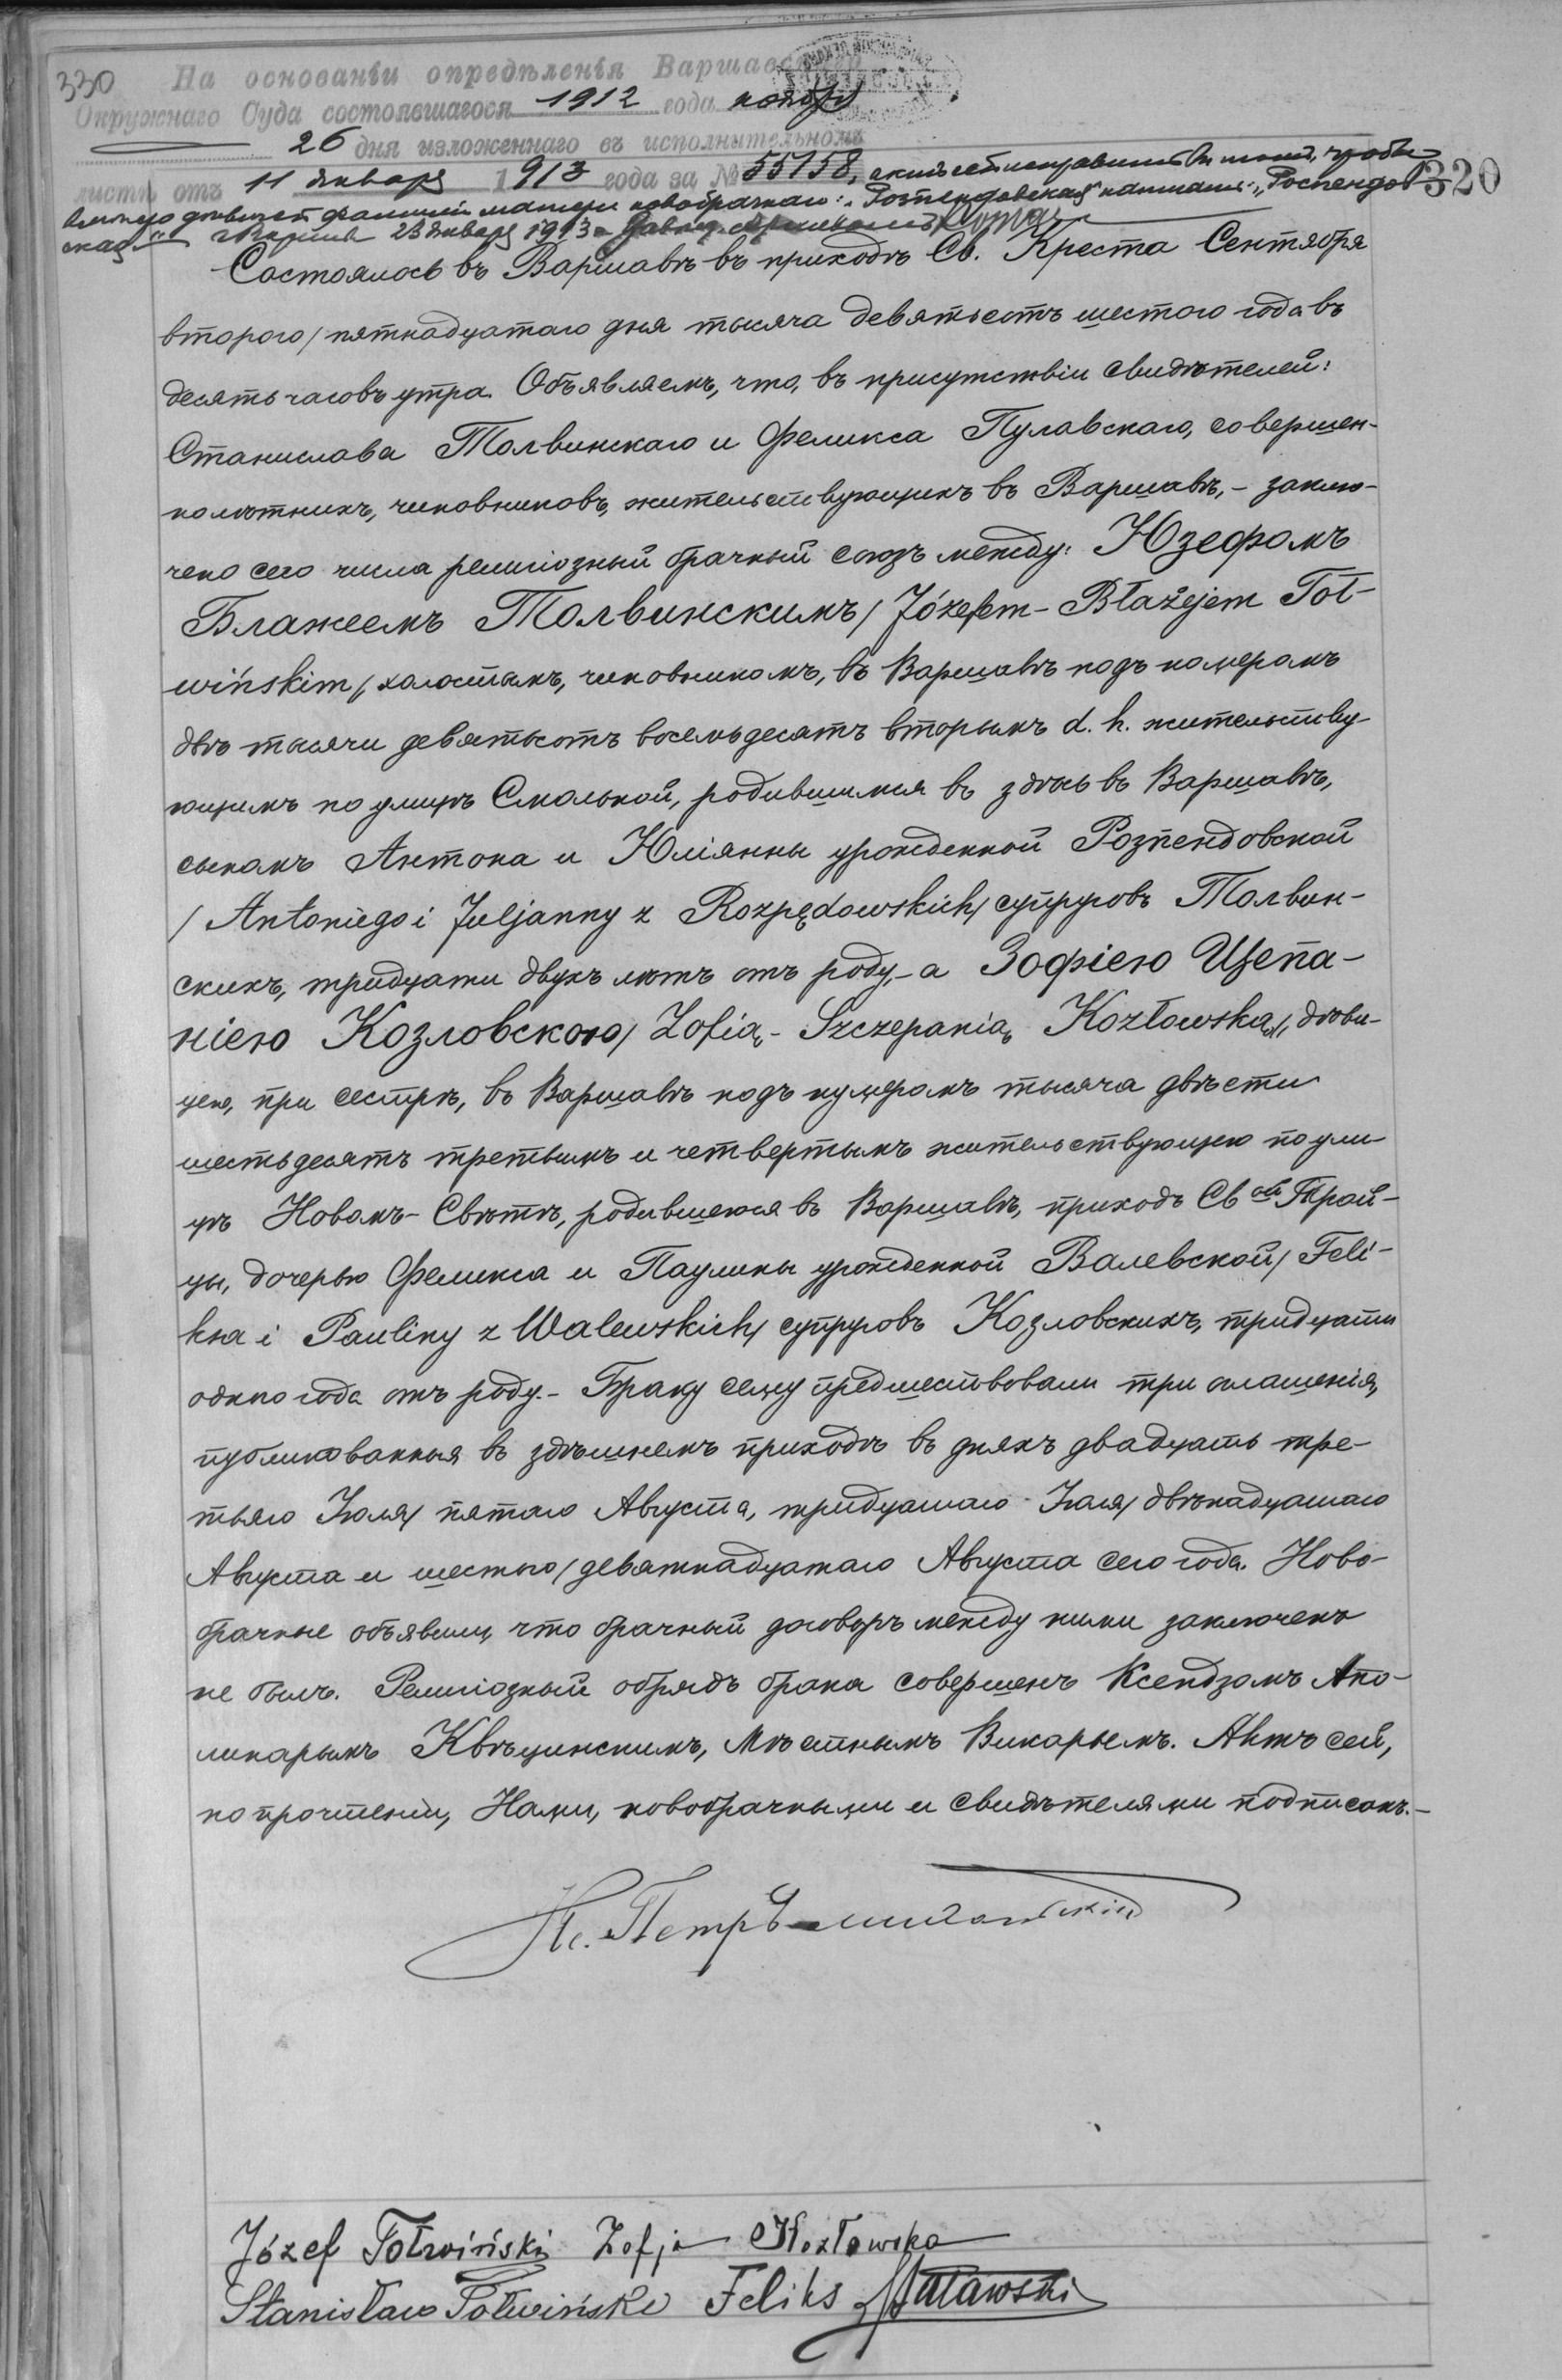 330 На основаньи опредѣленья Варшавскаго
Окружнаго Суда состоявшагося 1912 года ноября
26 дня изложеннаго въ исполнительномъ
листѣ отъ 11 января 1913 года за № 55158, актъ сей исправить въ томъ, чтобы
320
вмѣсто фамилiи матери новобрачнаго: „Розпендовская" написать: „Роспендов
ская" 23 января 1913
Состоялось въ Варшавѣ въ приходѣ Св. Креста Сентября
второго/пятнадцатаго дня тысяча девятьсотъ шестого года въ
десять часовъ утра. Объявляемъ, что, въ присутствіи свидѣтелей:
Станислава Толвинскаго и Феликса Пулавскаго, совершен-
нолѣтнихъ, чиновниковъ, жительствующихъ въ Варшавѣ, - заклю-
чено сего числа религіозный брачный союзъ между: Юзефомъ
Блажеемъ Толвинскимъ/Józefem-Błażejem Toł-
wińskim/, холостымъ, чиновникомъ, въ Варшавѣ подъ номеромъ
двѣ тысячи девятьсотъ восемьдесятъ вторымъ d. h. жительству-
ющимъ по улицѣ Смольной, родившимся въ здѣсь въ Варшавѣ,
сыномъ Антона и Юліянны урожденной Розпендовской
/Antoniego i Juljanny z Rozpędowskich/ супруговъ Толвин-
скихъ, тридцати двухъ лѣтъ отъ роду, - а Зофіею Щепа-
ніею Козловскою/Zofią-Szczepanią Kozłowską/, дѣви-
цею, при сестрѣ, въ Варшавѣ подъ нумеромъ тысяча двѣсти
шестьдесятъ третьимъ и четвертымъ жительствующею по ули-
цѣ Новомъ-Свѣтѣ, родившеюся въ Варшавѣ, приходѣ Св ой Трой-
цы, дочерью Феликса и Паулины урожденной Валевской/Feli-
ksa i Pauliny z Walewskich/ супруговъ Козловскихъ, тридцати
одного года отъ роду. - Браку сему предшествовали три оглашенія,
публикованныя въ здѣшнемъ приходѣ въ дняхъ двадцать тре-
тьяго Іюля/пятаго Августа, тридцатаго Іюля/двѣнадцатаго
Августа и шестого/девятнадцатаго Августа сего года. Ново-
брачные объявили, что брачный договоръ между ними заключенъ
не былъ. Религіозный обрядъ брака совершенъ Ксендзомъ Апо-
линарымъ Квѣцинскимъ, Мѣстнымъ Викарьемъ. Актъ сей,
по прочтеніи, Нами, новобрачными и свидѣтелями подписанъ. -
Кс. Петръ
Józef Tołwiński Zofja Kozłowska
Stanisław Tołwiński Feliks Puławski